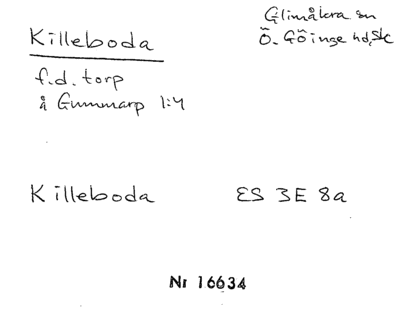 Killeboda
Glimåkra sn
Ö. Göinge hd, Sk
f.d. torp
å Gummarp 1:4
Killeboda ES 3E 8a
Nr 16634